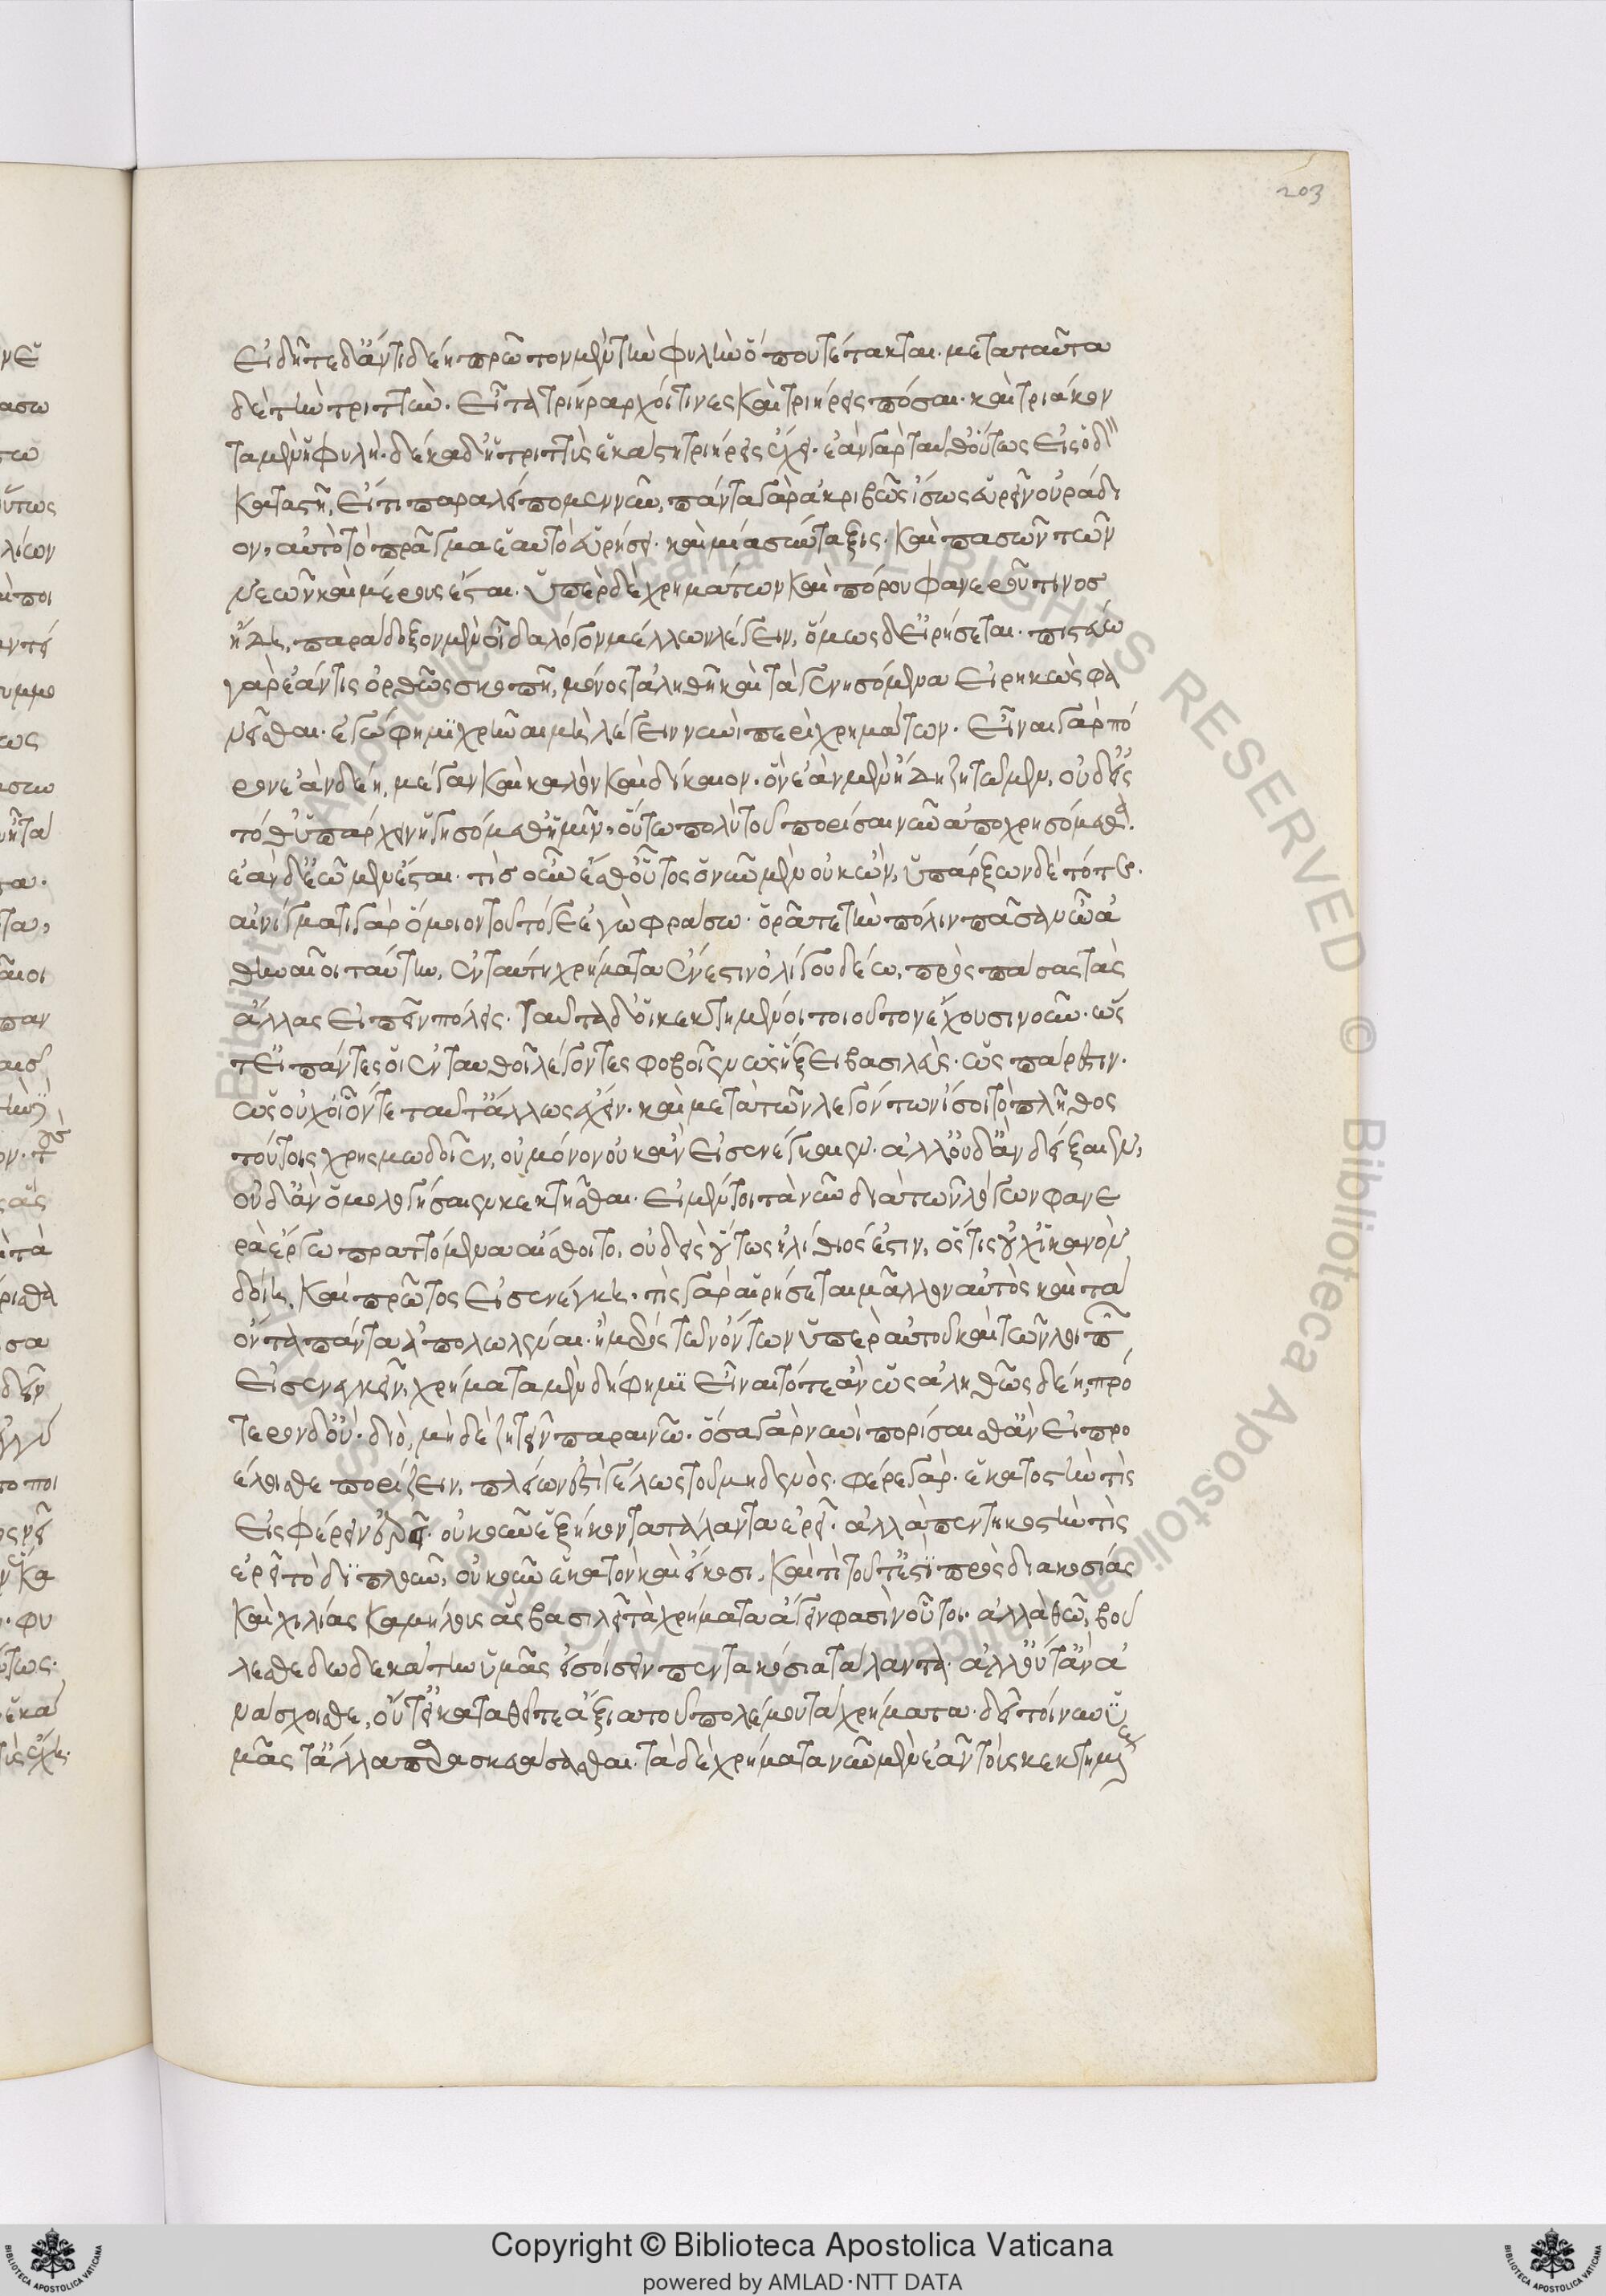 203
εἰδῆτε δἄν τι δέῃ πρῶτον μὲν τὴν φυλὴν ὅπου τέτακται. μετὰ ταῦτα
δὲ τὴν τριττὺν. εἶτα τριήραρχοί τινες καὶ τριήρεις πόσαι. καὶ τριάκον
τα μὲν ἡ φυλὴ. δέκα δ' ἡ τριττὺς ἑκάστη τριήρεις ἔχῃ. ἐὰν γὰρ ταῦθ' οὕτως εἰς ὁδὸν
καταστῇ, εἴ τι παραλείπομεν νῦν, πάντα γὰρ ἀκριβῶς ἴσως εὑρεῖν οὐ ῥάδι
ον, αὐτὸ τὸ πρᾶγμα ἑαυτὸ εὑρήσει. καὶ μία σύνταξις. καὶ πασῶν τῶν
νεῶν καὶ μέρους ἔσται. ὑπὲρ δὲ χρημάτων καὶ πόρου φανεροῦ τινοσ
ἤδη, παράδοξον μὲν οἶδα λόγον μέλλων λέγειν, ὅμως δ' εἰρήσεται. πιστεύω
γὰρ ἐάν τις ὀρθῶς σκοπῇ, μόνος τἀληθῆ καὶ τὰ γενησόμενα εἰρηκὼς φα
νεῖσθαι. ἐγώ φημι χρῆναι μὴ λέγειν νυνὶ περὶ χρημάτων. εἶναι γὰρ πό
ρον ἐὰν δέῃ, μέγαν καὶ καλὸν καὶ δίκαιον. ὃν ἐὰν μὲν ἤδη ζητῶμεν, οὐδεὶς
τόθ' ὑπάρχειν ἡγησόμεθ' ἡμῖν, οὕτω πολὺ τοῦ πορίσαι νῦν ἀποχρησόμεθα.
ἐὰν δ' ἐῶμεν ἔσται. τίς οὖν ἔσθ' οὗτος ὃ νῦν μὲν οὐκ ὢν, ὑπάρξων δὲ τότε.
αἰνίγματι γὰρ ὅμοιον τοῦτό γε ἐγὼ φράσω. ὁρᾶτε τὴν πόλιν πᾶσαν ὦ ἄ
θηναῖοι ταύτην, ἐν ταύτῃ χρήματα ἔνεστιν ὀλίγου δέω, πρὸς πάσας τὰς
ἄλλας εἰπεῖν πόλεις. ταῦτα δ' οἱ κεκτημένοι τοιοῦτον ἔχουσι νοῦν. ὥς
τ' εἰ πάντες οἱ ἐνταυθοῖ λέγοντες φοβοῖεν ὡς ἥξει βασιλεύς. ὡς πάρεστιν.
ὡς οὐχ οἷόν τε ταῦτ' ἄλλως ἔχειν. καὶ μετὰ τῶν λεγόντων ἴσοι τὸ πλῆθος
τούτοις χρησμῳδοῖεν, οὐ μόνον οὐκ ἂν εἰσενέγκαιεν. ἀλλ' οὐδ' ἂν δείξαιεν,
οὐδ' ἂν ὁμολογήσαιεν κεκτῆσθαι. εἰ μέντοι τὰ νῦν διὰ τῶν λόγων φανε
ρὰ ἔργῳ πραττόμενα αἴσθοιτο, οὐδεὶς οὕτως ἠλίθιός ἐστιν, ὅστις οὐχὶ κἂν
δοίη, καὶ πρῶτος εἰσενέγκῃ. τίς γὰρ αἱρήσεται μᾶλλον αὐτὸς καὶ τὰ
ὄντα πάντα ἀπολωλέναι. ἢ μέρος τῶν ὄντων ὑπὲρ αὐτοῦ καὶ τῶν λοιπῶν
εἰσενεγκεῖν, χρήματα μὲν δή φημι εἶναι τότε ἂν ὡς ἀληθῶς δέῃ, πρό
τερον δ' οὔ. διὸ, μηδὲ ζητεῖν παραινῶ. ὅσα γὰρ νυνὶ πορίσαισθ' ἂν εἰ προ
έλοισθε πορίζειν, πλείων ἐστὶ γέλως τοῦ μηδενός. φέρε γάρ. ἑκατοστήν τις
εἰσφέρειν ἐρεῖ. οὐκοῦν ἑξήκοντα τάλαντα ἐρεῖ. ἀλλὰ πεντηκοστήν τις
ἐρεῖ τὸ διπλοῦν, οὐκοῦν ἑκατὸν καὶ εἴκοσι, καὶ τί τοῦτ' ἐστὶ πρὸς διακοσίας
καὶ χιλίας καμήλους ἃς βασιλεῖ τὰ χρήματα ἄγειν φασὶν οὗτοι. ἀλλὰ θῶ, βού
λεσθε δωδεκάτην ὑμᾶς εἰσοίσειν πεντακόσια τάλαντα. ἀλλ' οὔτ' ἂν ἀ
νάσχοισθε, οὔτ' εἰ καταθεῖτε ἄξια τοῦ πολέμου τὰ χρήματα. δεῖ τοίνυν ὑ
μᾶς τἄλλα παρασκευάσασθαι. τὰ δὲ χρήματα νῦν μὲν ἐᾶν τοὺς κεκτημένους
Copyright © Biblioteca Apostolica Vaticana
powered by AMLAD·NTT DATA